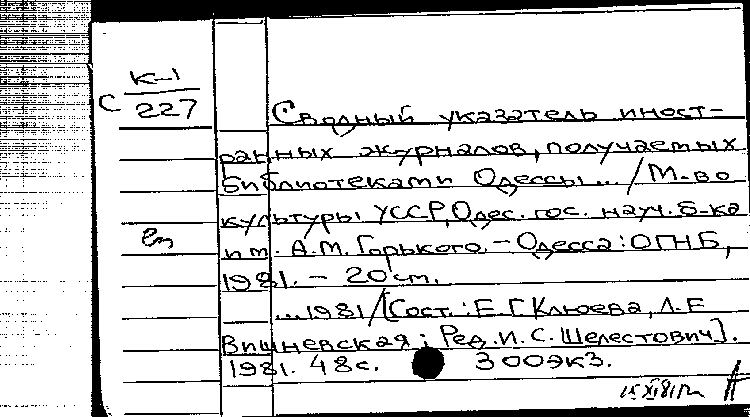 К-1
С 227
Сводный указатель иност-
ранных журналов, получаемых
библиотеками Одессы... /М-во
культуры УССР, Одес. гос. науч. б-ка
им. А.М. Горького. - Одесса: ОГНБ,
1981. - 20 см.
...1981/[Сост.: Е.Г. Клюева, Л.Е
Вишневская; Ред. И.С. Шелестович].
1981. 48с. 300экз.